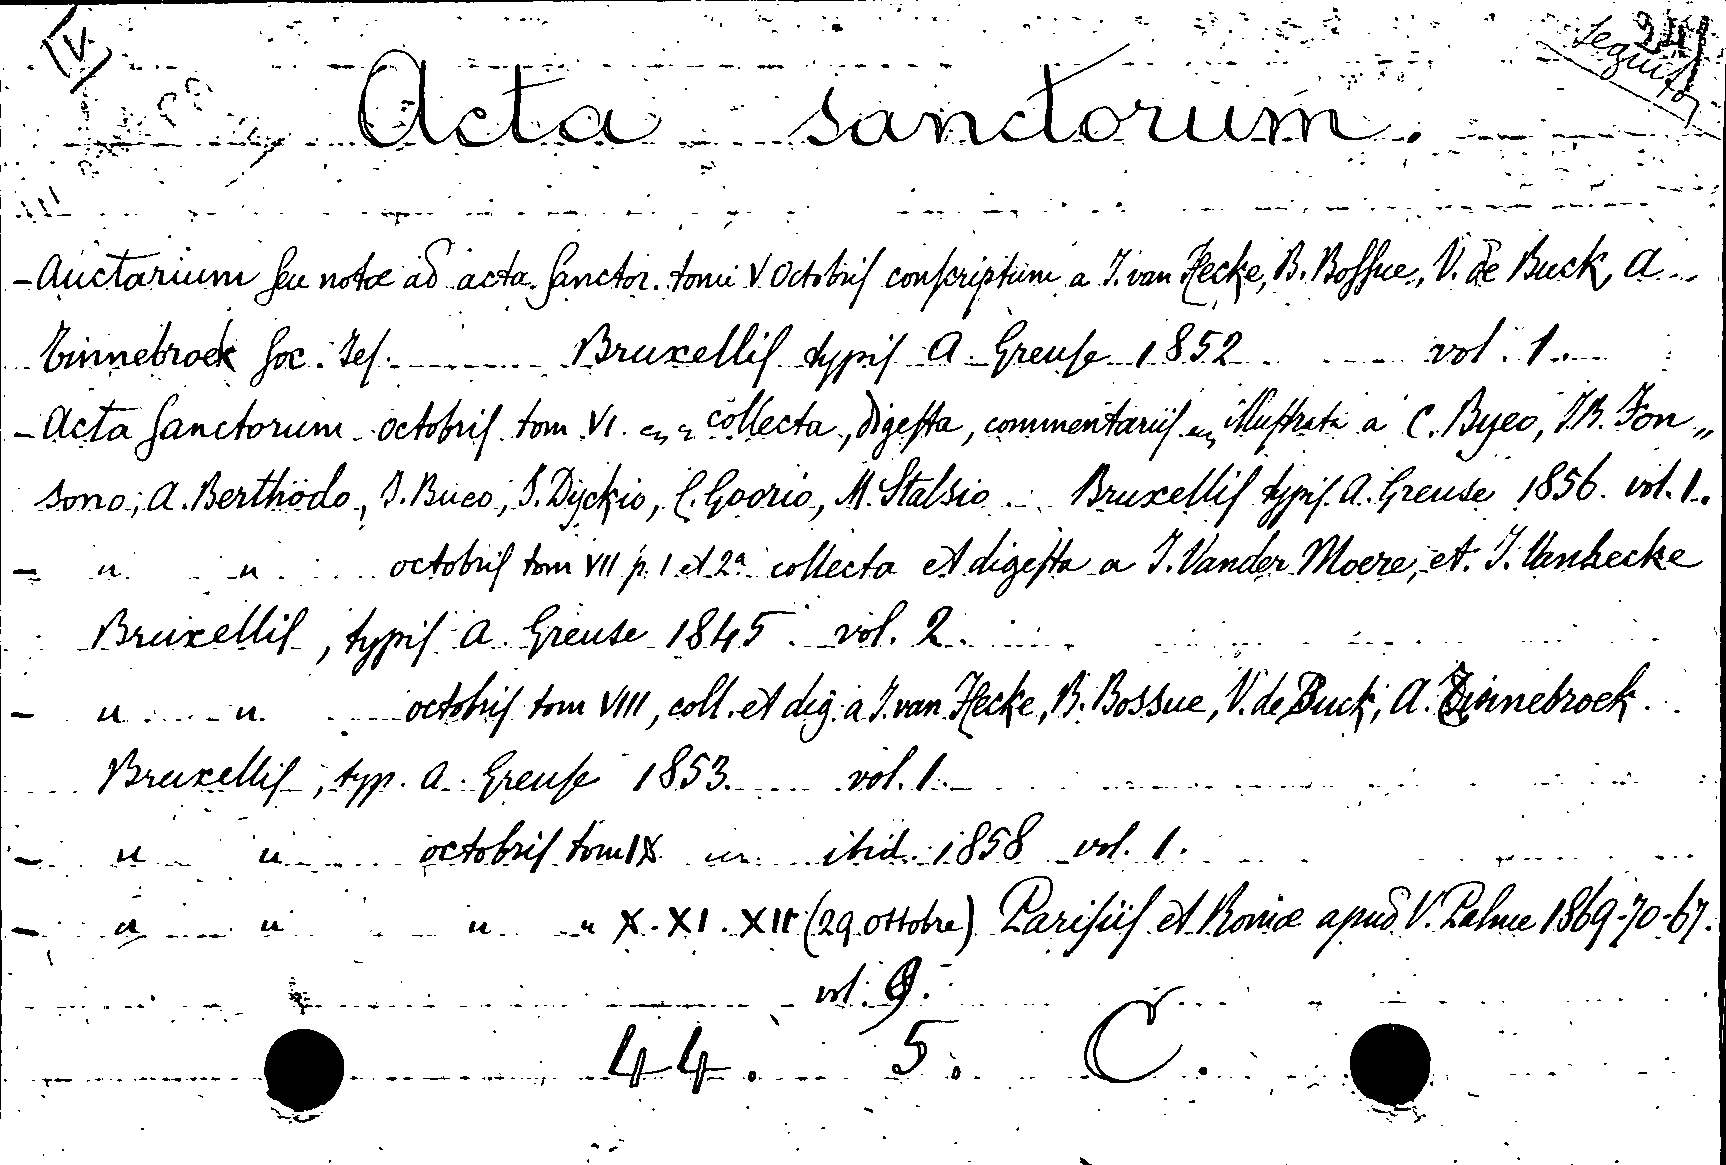 V.
241
seguito
Acta sanctorum.
- Auctarium seu notæ ad acta Sanctor. tomi V Octobris conscriptum a J. van Hecke, B. Bossue, V. de Buck, A
Tinnebroek Soc. Jes. Bruxellis typis A. Greuse 1852 vol. 1.
- Acta Sanctorum octobris tom VI. collecta, digesta, commentariis illustrata a C. Byeo, J.B. Fon„
sono, A. Berthodo, S. Bueo, S. Dyckio, C. Goorio, M. Stalsio Bruxellis typis A. Greuse 1856. vol. 1.
- " " octobris tom VII p. 1 et 2ª collecta et digesta a J. Vander Moere, et J. Vanhecke
Bruxellis, typis A. Greuse 1845. vol. 2.
- " " octobris tom VIII, coll. et dig. a J. van Hecke, B. Bossue, V. de Buck, A. Tinnebroek.
Bruxellis, typ. A. Greuse 1853. vol. 1.
- " " octobris tom IX ibid. 1858 vol. 1.
- " " " " X. XI. XII (29 ottobre) Parisiis et Romæ apud V. Palme 1869-70-67.
vol. 9.
44. 5. C.